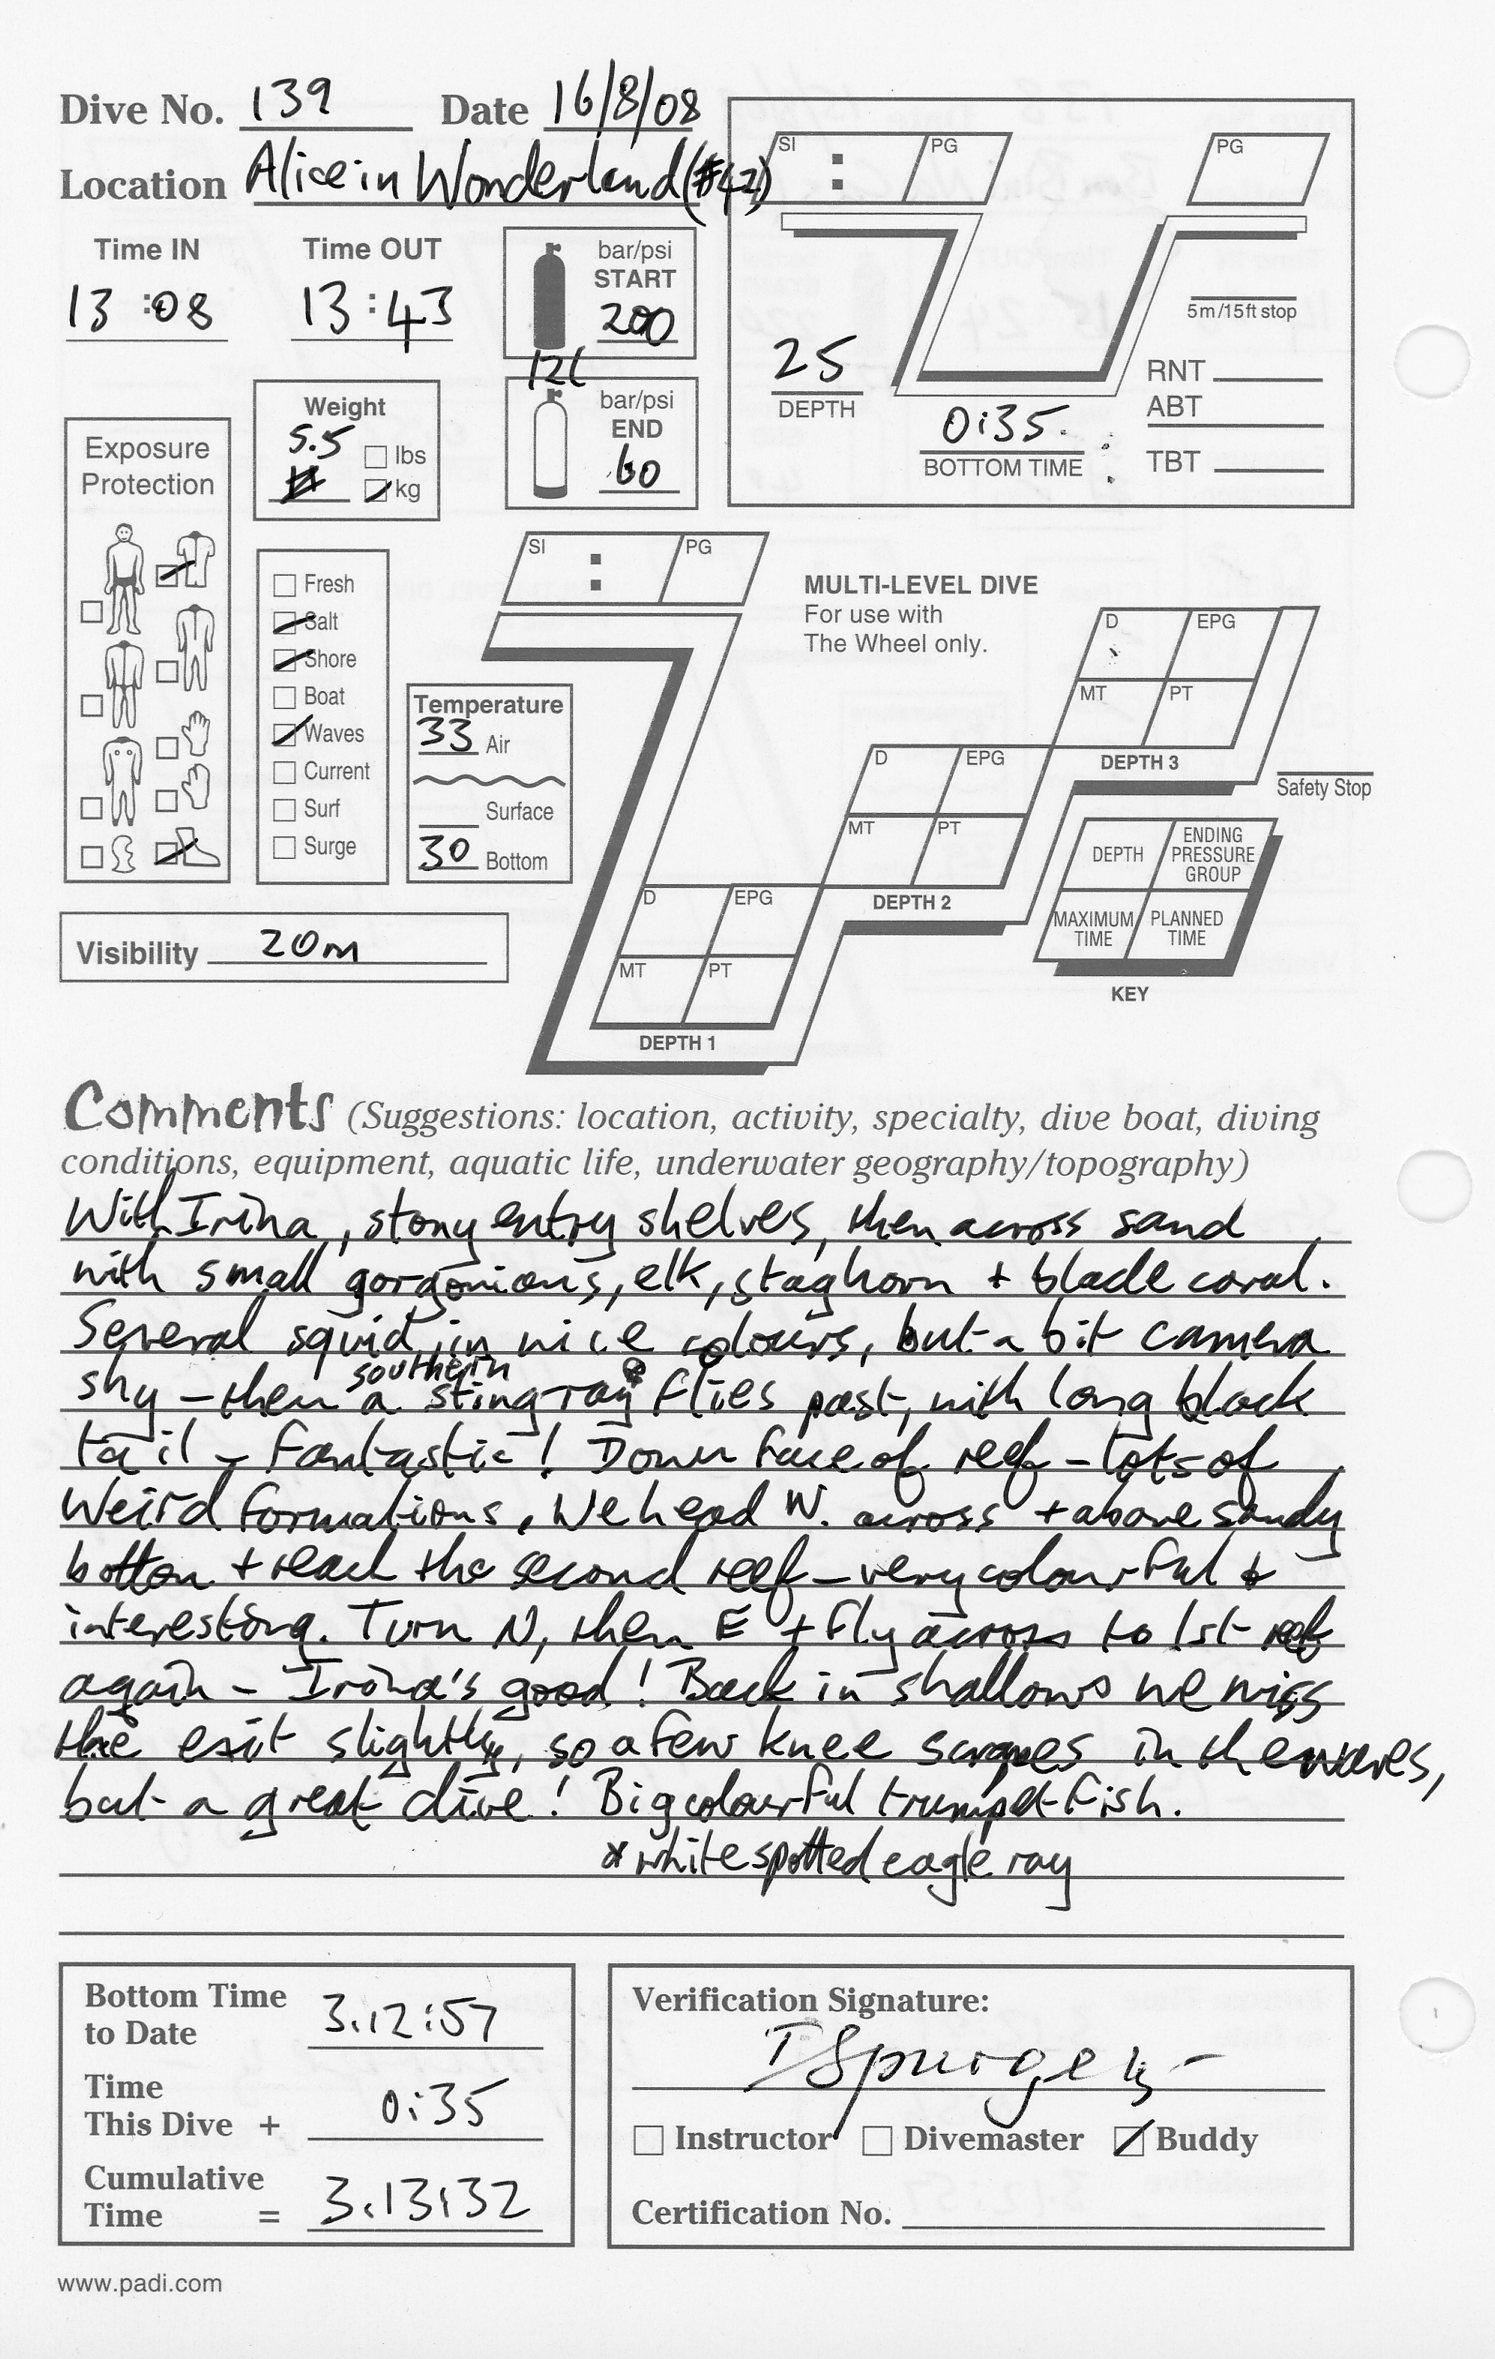 Dive No. 139 Date 16/8/08
Location Alice in Wonderland (#42)
SI : PG
PG
Time IN
13:08
Time OUT
13:43
bar/psi
START
200
12l
bar/psi
END
60
5m/15ft stop
25
DEPTH
0:35
BOTTOM TIME :
RNT
ABT
TBT
Weight
5.5
lbs
kg
Exposure
Protection
Fresh
Salt
Shore
Boat
Waves
Current
Surf
Surge
Temperature
33 Air
Surface
30 Bottom
Visibility 20m
SI : PG
MULTI-LEVEL DIVE
For use with
The Wheel only.
D EPG
MT PT
DEPTH 1
D EPG
MT PT
DEPTH 2
D EPG
MT PT
DEPTH 3
Safety Stop
DEPTH ENDING PRESSURE GROUP
MAXIMUM TIME PLANNED TIME
KEY
Comments (Suggestions: location, activity, specialty, dive boat, diving
conditions, equipment, aquatic life, underwater geography/topography)
With Irina, stony entry shelves, then across sand
with small gorgonians, elk, staghorn + blade coral.
Several squid, in nice colours, but a bit camera
shy – then a southern stingray* flies past, with long black
tail – fantastic! Down face of reef – lots of
weird formations. We head W. across + above sandy
bottom + reach the second reef – very colourful +
interesting. Turn N, then E + fly across to 1st reef
again – Irina's good! Back in shallows we miss
the exit slightly, so a few knee scrapes in the waves,
but a great dive! Big colourful trumpetfish.
* white spotted eagle ray
Bottom Time
to Date 3.12:57
Time
This Dive + 0:35
Cumulative
Time = 3.13:32
Verification Signature:
I Spurgeon
Instructor Divemaster Buddy
Certification No.
www.padi.com